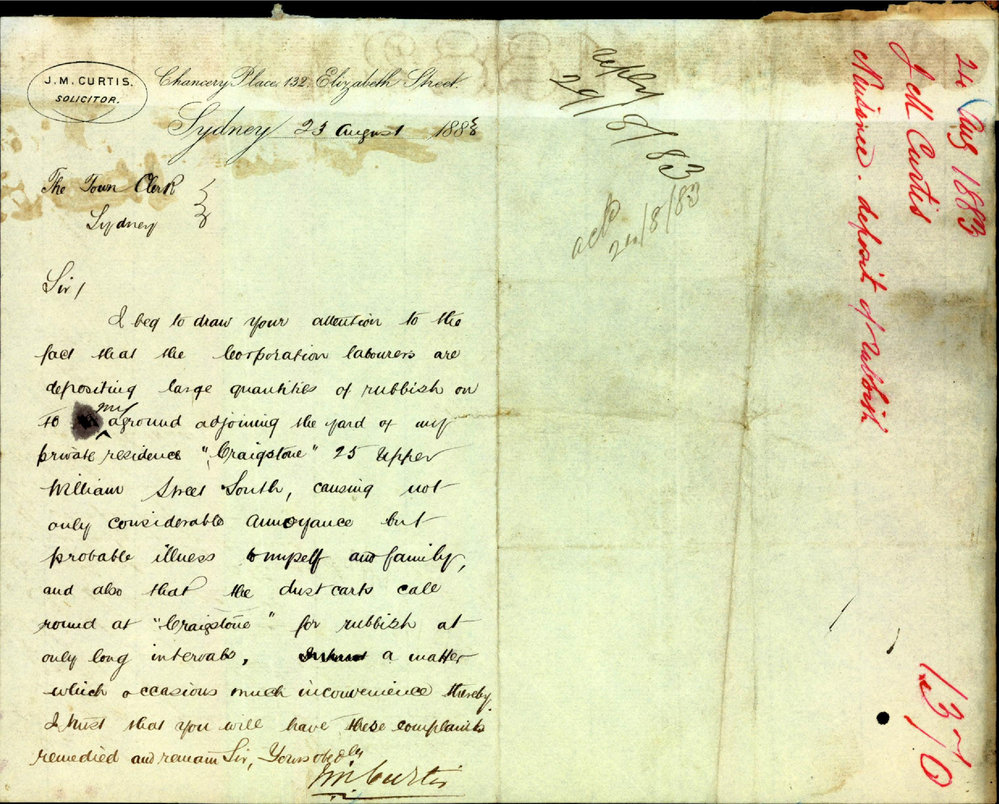 J. M. CURTIS.
SOLICITOR.
Chancery Place, 132, Elizabeth Street.
Sydney 23 August 1883
The Town Clerk
Sydney
Sir/
I beg to draw your attention to the
fact that the Corporation labourers are
depositing large quantities of rubbish on
to my ground adjoining the yard of my
private residence "Craigstone" 25 Upper
William Street South, causing not
only considerable annoyance but
probable illness to myself and family,
and also that the dust carts call
round at "Craigstone" for rubbish at
only long intervals, a matter
which occasions much inconvenience thereby.
I trust that you will have these complaints
remedied and remain Sir, Yours obdly
JM Curtis
reply
29/8/83
ackd
24/8/83
24 Aug 1883
J M Curtis
Nuisance. deposit of rubbish
1370